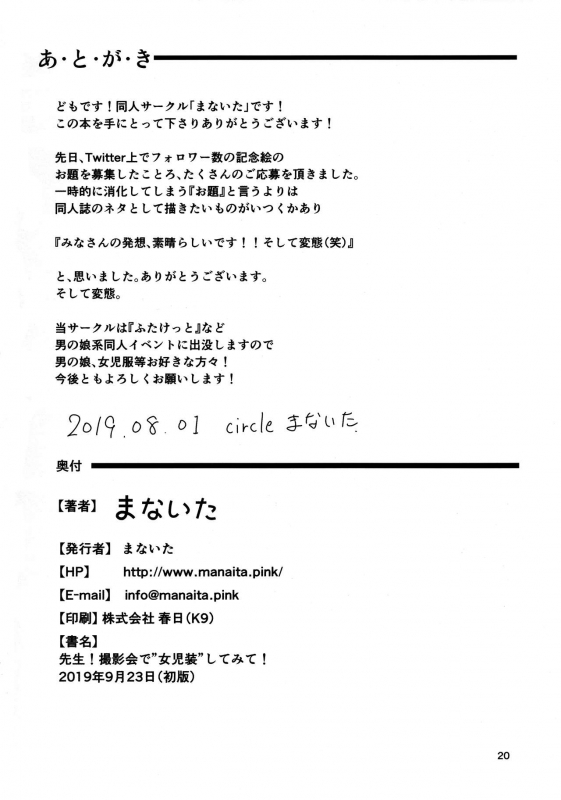 あ・と・が・き
どもです！同人サークル「まないた」です！
この本を手にとって下さりありがとうございます！
先日、Twitter上でフォロワー数の記念絵の
お題を募集したことろ、たくさんのご応募を頂きました。
一時的に消化してしまう『お題』と言うよりは
同人誌のネタとして描きたいものがいつくかあり
『みなさんの発想、素晴らしいです！！そして変態（笑）』
と、思いました。ありがとうございます。
そして変態。
当サークルは『ふたけっと』など
男の娘系同人イベントに出没しますので
男の娘、女児服等お好きな方々！
今後ともよろしくお願いします！
2019.08.01 circle まないた
奥付
【著者】 まないた
【発行者】 まないた
【HP】 http://www.manaita.pink/
【E-mail】 info@manaita.pink
【印刷】 株式会社 春日（K9）
【書名】
先生！撮影会で”女児装”してみて！
2019年9月23日（初版）
20